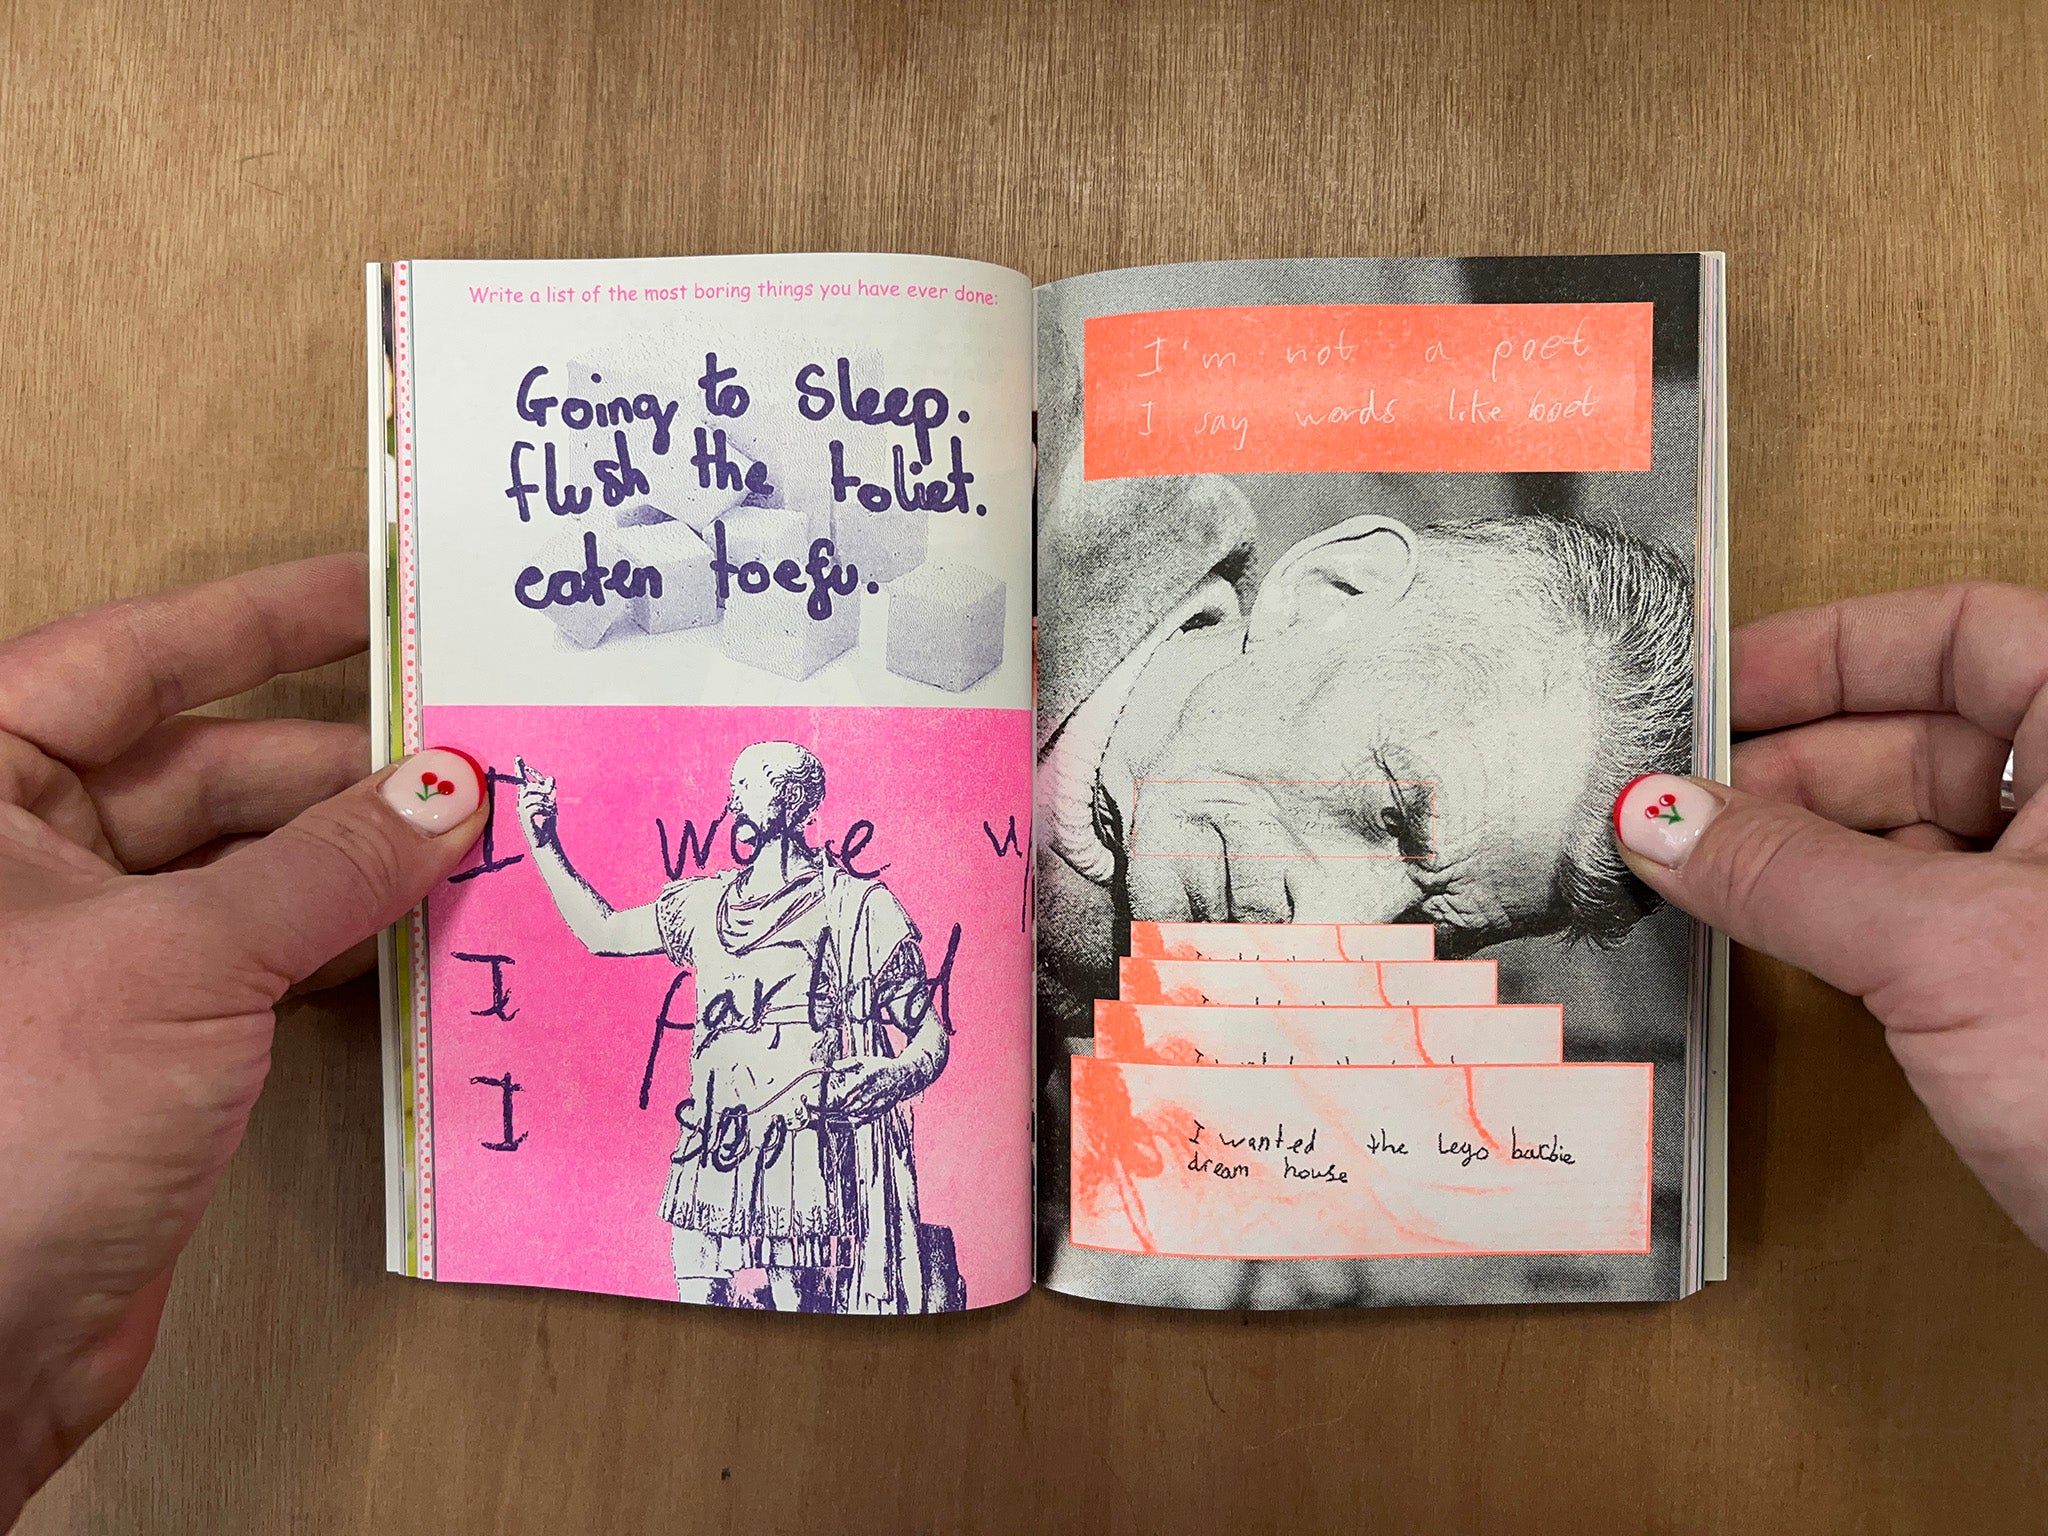 Write a list of the most boring things you have ever done:
Going to Sleep.
flush the toliet.
eaten toefu.
I woke
I farted
I slept
I'm not a poet
I say words like boet
I wanted the lego barbie
dream house